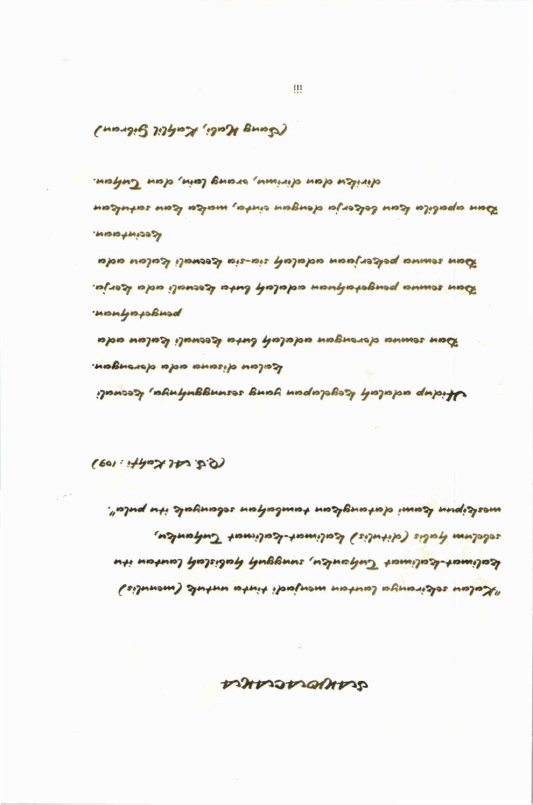 "Kalau sekiranya lautan menjadi tinta untuk (menulis)
kalimat-kalimat Tuhanku, sungguh habislah lautan itu
sebelum habis (ditulis) kalimat-kalimat Tuhanku,
meskipun kami datangkan tambahan sebanyak itu pula".
(Q.S. Al Kahfi : 109)
Hidup adalah kegelapan yang sesungguhnya, kecuali
kalau disana ada dorongan.
Dan semua dorongan adalah buta kecuali kalau ada
pengetahuan.
Dan semua pengetahuan adalah buta kecuali ada kerja.
Dan semua pekerjaan adalah sia-sia kecuali kalau ada
kecintaan.
Dan apabila kau bekerja dengan cinta, maka kau satukan
diriku dan dirimu, orang lain, dan Tuhan.
(Sang Nabi, Kahlil Gibran)
iii